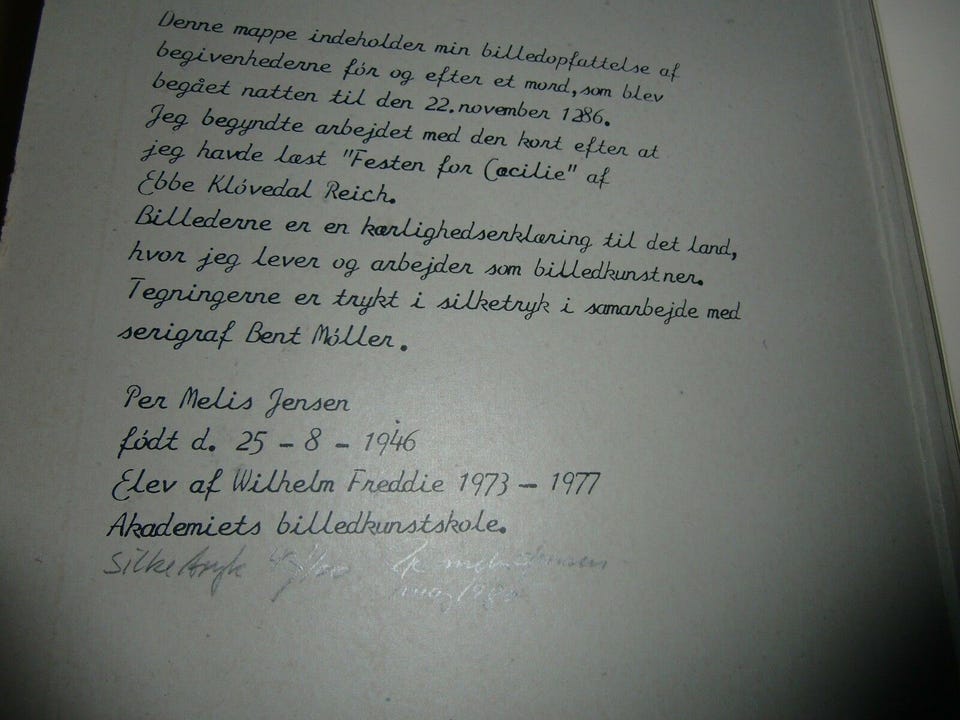 Denne mappe indeholder min billedopfattelse af
begivenhederne fór og efter et mord, som blev
begået natten til den 22. november 1286.
Jeg begyndte arbejdet med den kort efter at
jeg havde læst "Festen for Cæcilie" af
Ebbe Klóvedal Reich.
Billederne er en kærlighedserklæring til det land,
hvor jeg lever og arbejder som billedkunstner.
Tegningerne er trykt i silketryk i samarbejde med
serigraf Bent Móller.
Per Melis Jensen
fódt d. 25 - 8 - 1946
Elev af Wilhelm Freddie 1973 - 1977
Akademiets billedkunstskole.
Silketryk